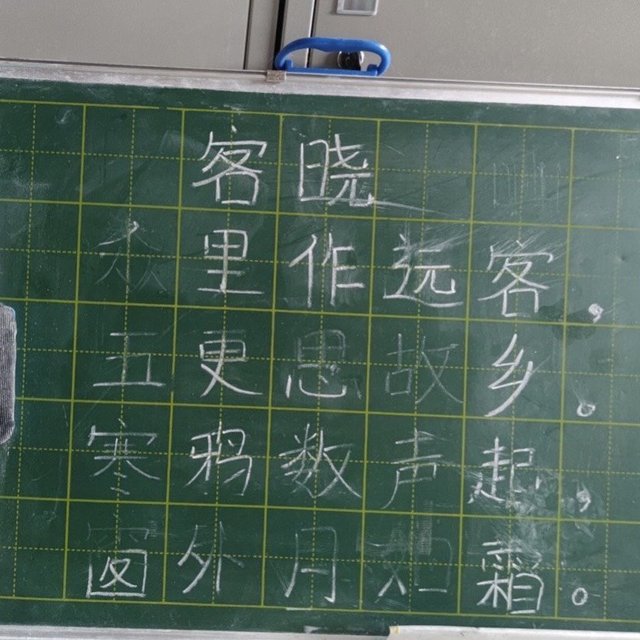 客晓
里作远客，
五更思故乡。
寒鸦数声起，
窗外月如霜。